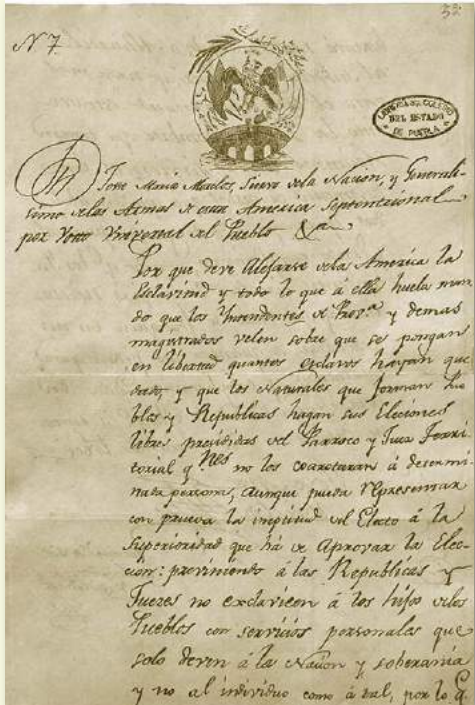 Nº 7.
32.
LIBRERIA DEL COLEGIO
DEL ESTADO
DE PUEBLA
Jose Maria Morelos, Siervo dela Nacion, y Generali-
simo delas Armas de esta America Septentrional
por Voto Vniversal del Pueblo &a.
Por que deve Alejarse dela America la
Esclavitud y todo lo que à ella huela man-
do que los Yntendentes de Prov.a y demas
magistrados velen sobre que se pongan
en libertad quantos esclavos hayan que
dado, y que los Naturales que forman Pue
blos y Republicas hagan sus Eleciones
libres presididas del Parroco y Juez Terri
torial quienes no los coartaran à determi
nada persona, aunque pueda representar
con prueva la ineptitud del Electo à la
Superioridad que hà de Aprovar la Elec-
cion: previniendo à las Republicas y
Jueces no esclavicen à los hijos delos
Pueblos con servicios personales que
solo deven à la Nacion y soberania
y no al individuo como à tal, por lo q.